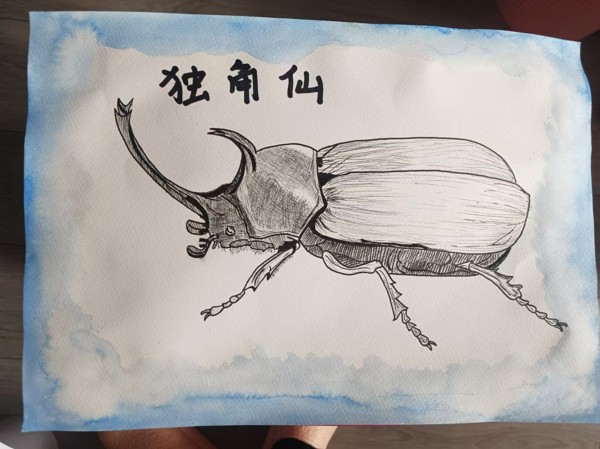 独角仙